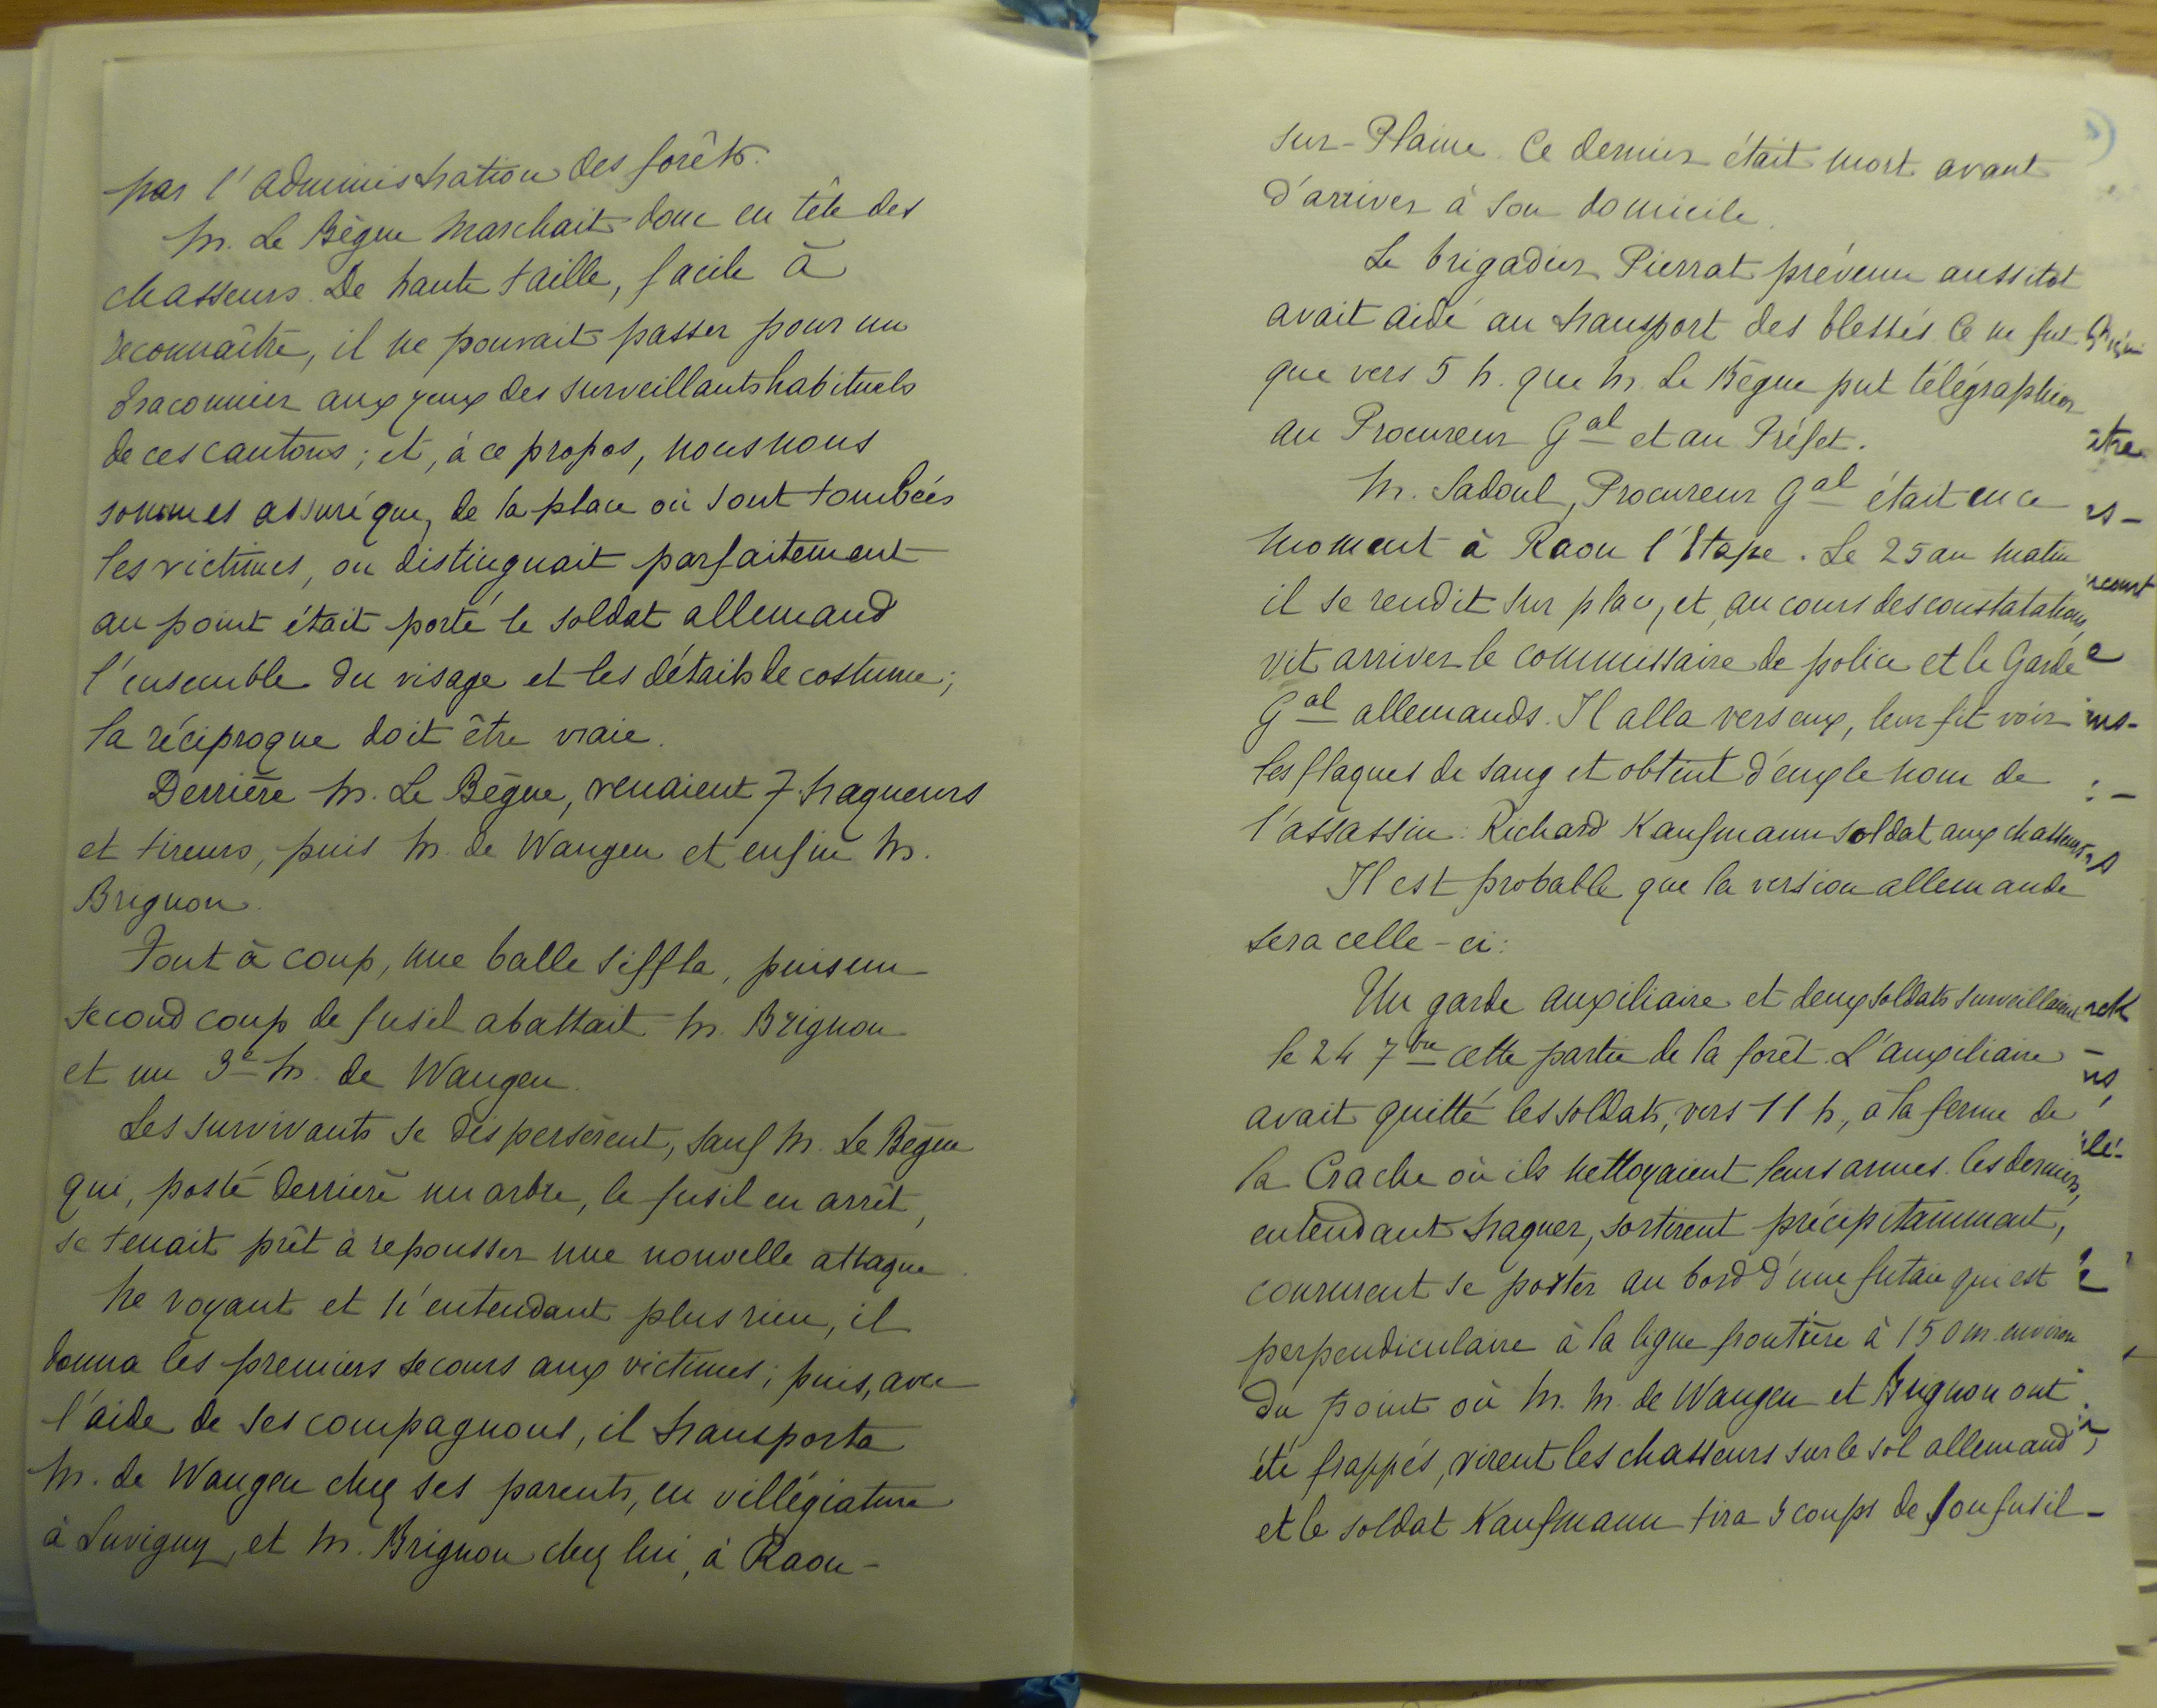 par l'administration des forêts.
M. Le Bègue marchait donc en tête des
chasseurs. De haute taille, facile à
reconnaître, il ne pouvait passer pour un
braconnier aux yeux des surveillants habituels
de ces cantons ; et, à ce propos, nous nous
sommes assuré que, de la place où sont tombées
les victimes, on distinguait parfaitement
au point était porté le soldat allemand
l'ensemble du visage et les détails de costume ;
la réciproque doit être vraie.
Derrière M. Le Bègue, venaient 7 traqueurs
et tireurs, puis M. de Wangen et enfin M.
Brignon.
Tout à coup, une balle siffla, puis un
second coup de fusil abattait M. Brignon
et un 3e M. de Wangen.
Les survivants se dispersèrent, sauf M. Le Bègue
qui, posté derrière un arbre, le fusil en arrêt,
se tenait prêt à repousser une nouvelle attaque.
Ne voyant et n'entendant plus rien, il
donna les premiers secours aux victimes ; puis, avec
l'aide de ses compagnons, il transporta
M. de Wangen chez ses parents, en villégiature
à Luvigny, et M. Brignon chez lui, à Raon-
sur-Plaine. Ce dernier était mort avant
d'arriver à son domicile.
Le brigadier Pierrat prévenu aussitot
avait aidé au transport des blessés. Ce ne fut
que vers 5 h. que M. Le Bègue put télégraphier
au Procureur Gal et au Préfet.
être
M. Sadoul, Procureur Gal était en ce
moment à Raon l'Etape. Le 25 au matin
il se rendit sur place, et, au cours des constatations,
vit arriver le commissaire de police et le Garde
Gal allemands. Il alla vers eux, leur fit voir
les flaques de sang et obtint d'eux le nom de
l'assassin : Richard Kaufmann soldat aux chasseurs.
Il est probable que la version allemande
sera celle-ci :
Un garde auxiliaire et deux soldats surveillaient
le 24 7bre cette partie de la forêt. L'auxiliaire
avait quitté les soldats, vers 11 h, à la ferme de
la Crache où ils nettoyaient leurs armes. Ces derniers,
entendant traquer, sortirent précipitamment,
coururent se poster au bord d'une futaie qui est
perpendiculaire à la ligne frontière à 150 m. environ
du point où M. M. de Wangen et Brignon ont
été frappés, virent les chasseurs sur le sol allemand
et le soldat Kaufmann tira 3 coups de son fusil